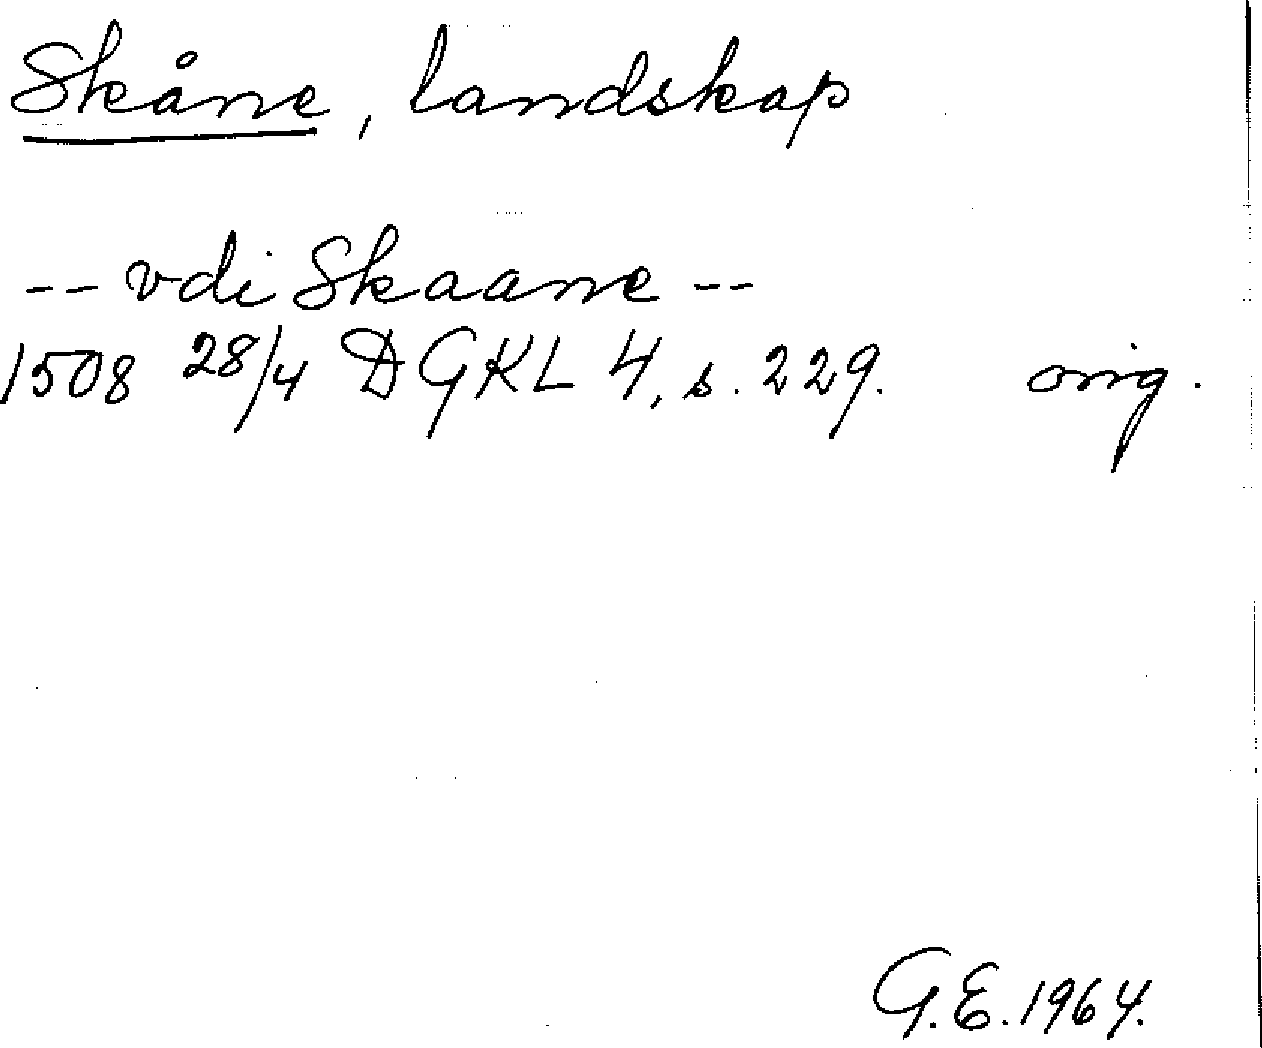 Skåne, landskap
-- vdi Skaane --
1508 28/4 DGKL 4, s. 229. orig.
G.E. 1964.